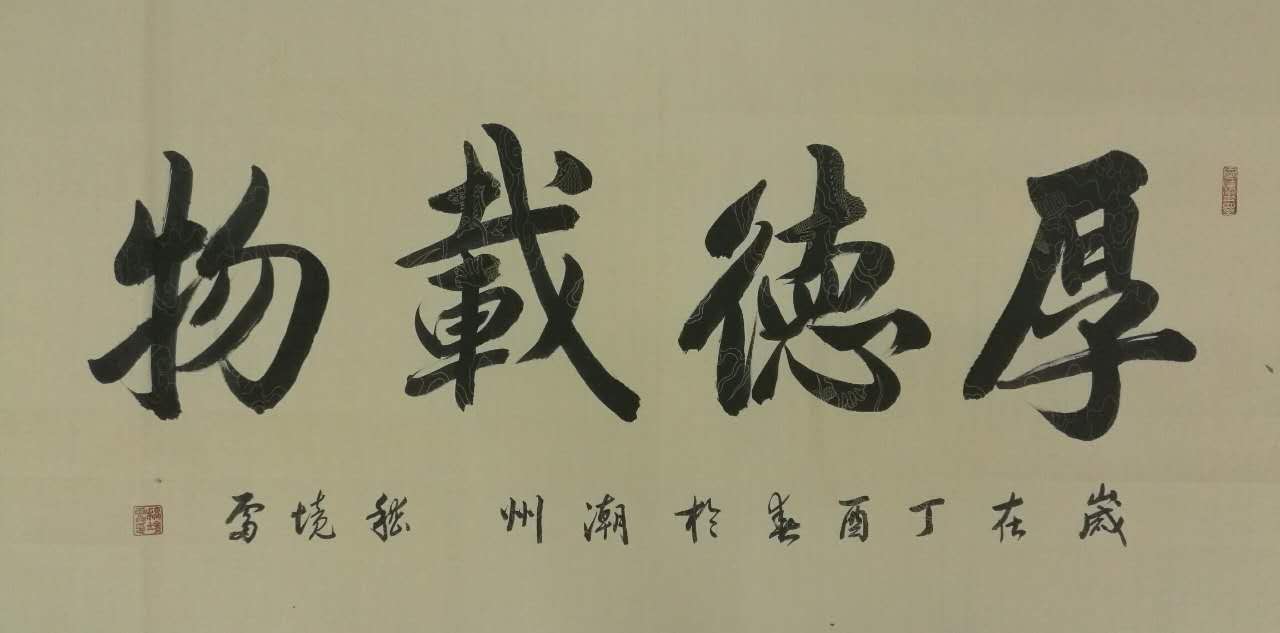 厚德載物
歲在丁酉春於潮州 境雷